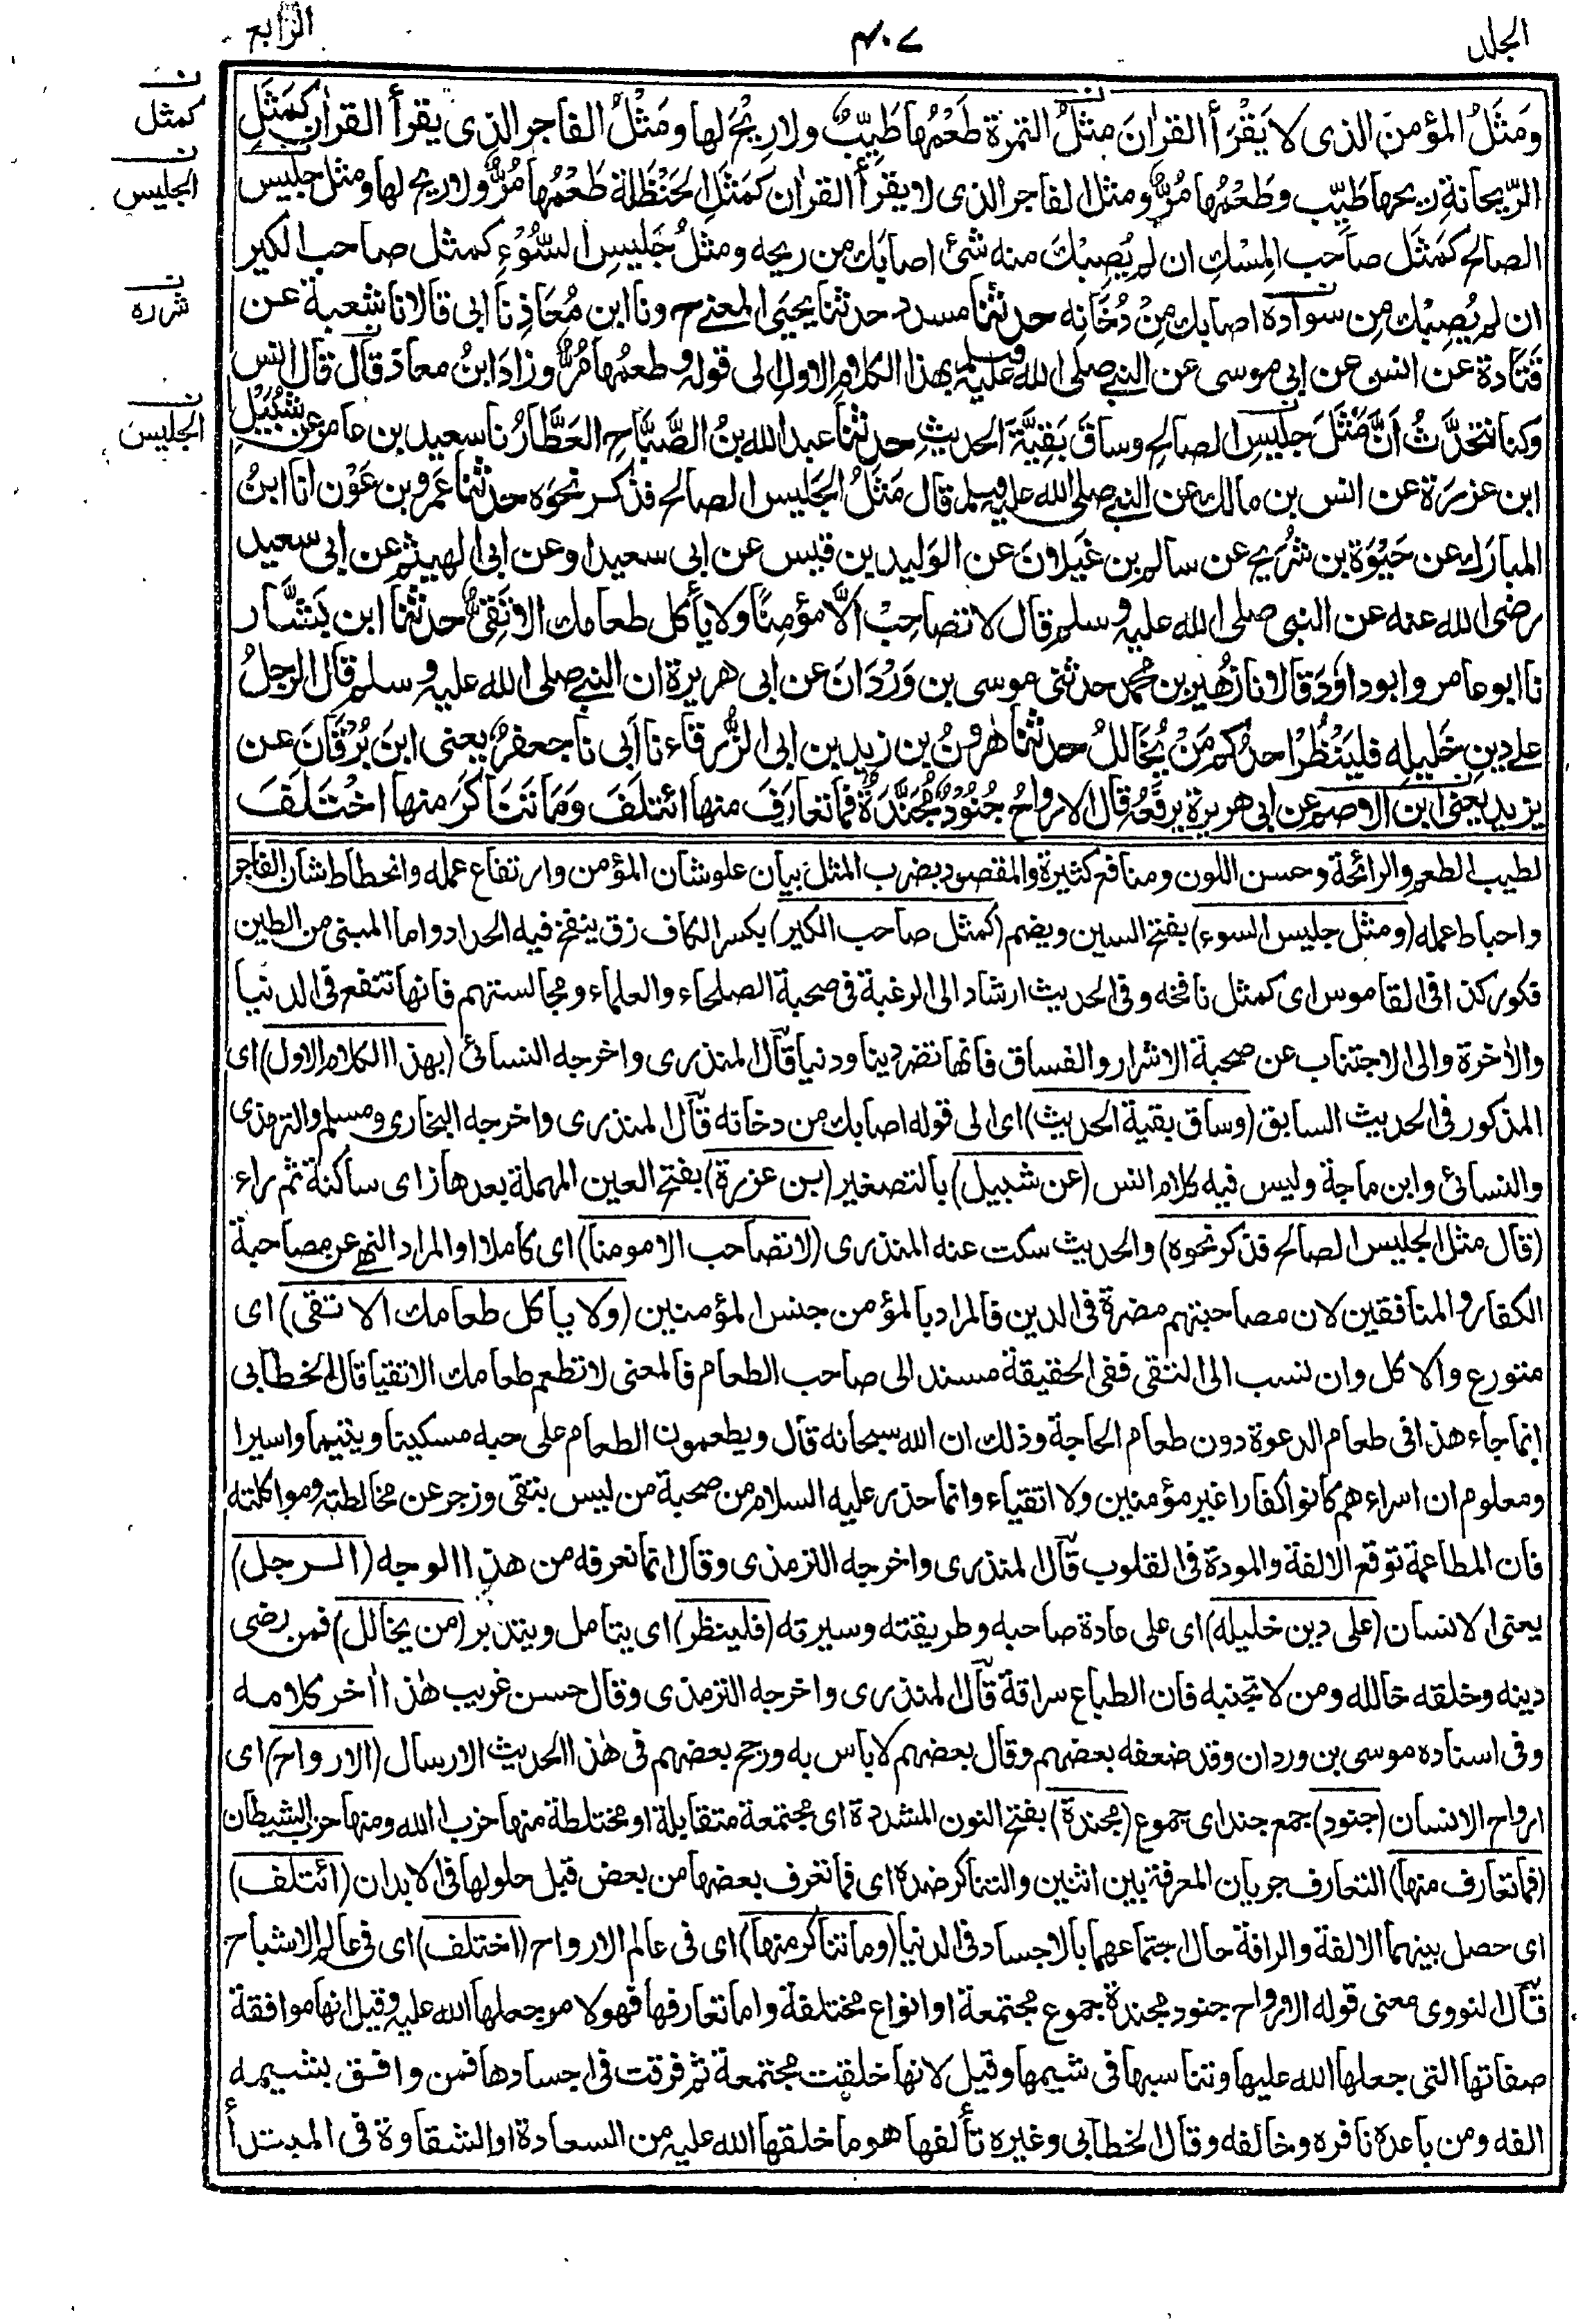 الجلد
٤٠٧
الرابع
ومَثَلُ المؤمن الذى لا يَقْرَأ القراٰنَ مثلُ التمرة طَعْمُها طَيِّبٌ ولا رِيْحَ لها ومَثْلُ الفاجر الذى يقرأ القراٰن كَمَثَلِ
الرّيحانةِ ريحها طَيِّب وطَعْمُها مُرٌّ ومثل الفاجر الذى لا يقرَأُ القراٰن كَمَثَلِ الحَنْظَلة طَعْمُها مُرٌّ ولا ريح لها ومثل جليس
الصالح كَمَثَل صاحب المِسْكِ ان لم يُصِبْكَ منه شئ اصابَك من ريحه ومثلُ جَليسِ السُّوْءِ كمثل صاحب الكير
ان لم يُصِبْك مِن سواده اصابك مِنْ دُخَانِه حدثنا مسدد حدثنا يحيَى المعنے ح ونا ابن مُعَاذٍ نا ابى قالا نا شعبة عن
قَتَادة عن انس عن ابى موسى عن النبے صلى الله عليه وسلم بهذا الكلام الاول الى قوله وطعمُها مُرٌّ وزادَ ابنُ معاذ قال قال انس
وكنا نتحدَّثُ انَّ مَثَلَ جليسِ الصالح وساقَ بَقِيَّةَ الحديثِ حدثنا عبد الله بنُ الصَّبّاحِ العَطّارُ نا سعيد بن عامر عن شُبَيْلِ
ابن عزرَة عن انس بن مالك عن النبے صلى الله عليه وسلم قال مَثَلُ الجَليس الصالح فذكر نحوَه حدثنا عَمرو بن عَوْن انا ابنُ
المبارَك عن حَيْوَة بن شُرَيح عن سالم بن غَيلانَ عن الوَليد بن قيس عن ابى سعيد او عن ابى الهيثم عن ابى سعيد
رضى الله عنه عن النبى صلى الله عليه وسلم قال لا تصاحِبْ الّا مؤمِنًا ولا يأكل طعامك الا تَقِىٌّ حدثنا ابن بَشَّار
نا ابو عامر وابو داوٗد قالا نا زُهَير بن محمد حدثنى موسى بن وَرْدَانَ عن ابى هريرة ان النبے صلى الله عليه وسلم قال الرجلُ
علے دين خَليلِه فليَنْظُرْ احدُكم مَنْ يُخَالِلُ حدثنا هٰرونُ بن زيد بن ابى الزرقاء نا اَبى نا جعفر يعنى ابنَ بُرْقَانَ عن
يزيد يعنى ابن الاصم عن ابى هريرة يرفعُه قال الارواحُ جُنُودٌ مُجَنَّدَةٌ فما تعارَفَ منها ائتلَفَ وَمَا تَنَاكرَ منها اخْتَلَفَ
لطيب الطعم والرائحة وحسن اللون ومنافع كثيرة والمقصود بضرب المثل بيان علو شان المؤمن وارتفاع عمله وانحطاط شان الفاجر
واحباط عمله (ومثل جليس السوء) بفتح السين ويضم (كمثل صاحب الكير) بكسر الكاف زق ينفخ فيه الحداد واما المبنى من الطين
فكور كذا فى القاموس اى كمثل نافخه وفى الحديث ارشاد الى الرغبة فى صحبة الصلحاء والعلماء ومجالستهم فانها تنفع فى الدنيا
والاٰخرة والى الاجتناب عن صحبة الاشرار والفساق فانها تضر دينا ودنيا قال المنذرى واخرجه النسائى (بهذا الكلام الاول) اى
المذكور فى الحديث السابق (وساق بقية الحديث) اى الى قوله اصابك من دخانه قال المنذرى واخرجه البخارى ومسلم والترمذى
والنسائى وابن ماجة وليس فيه كلام انس (عن شبيل) بالتصغير (بن عزرة) بفتح العين المهملة بعدها زاى ساكنة ثم راء
(قال مثل الجليس الصالح فذكر نحوه) والحديث سكت عنه المنذرى (لا تصاحب الا مومنا) اى كاملا او المراد النهے عن مصاحبة
الكفار والمنافقين لان مصاحبتهم مضرة فى الدين فالمراد بالمؤمن جنس المؤمنين (ولا ياكل طعامك الا تقى) اى
متورع والاكل وان نسب الى التقى ففى الحقيقة مسند الى صاحب الطعام فالمعنى لا تطعم طعامك الا تقيا قال الخطابى
انما جاء هذا فى طعام الدعوة دون طعام الحاجة وذلك ان الله سبحانه قال ويطعمون الطعام على حبه مسكينا ويتيما واسيرا
ومعلوم ان اسراءهم كانوا كفارا غير مؤمنين ولا اتقياء وانما حذر عليه السلام من صحبة من ليس بتقى وزجر عن مخالطته ومواكلته
فان المطاعمة توقع الالفة والمودة فى القلوب قال المنذرى واخرجه الترمذى وقال انما نعرفه من هذا الوجه (الرجل)
يعنى الانسان (على دين خليله) اى على عادة صاحبه وطريقته وسيرته (فلينظر) اى يتامل ويتدبر (من يخالل) فمن رضى
دينه وخلقه خالله ومن لا تجنبه فان الطباع سراقة قال المنذرى واخرجه الترمذى وقال حسن غريب هٰذا اٰخر كلامه
وفى اسناده موسى بن وردان وقد ضعفه بعضهم وقال بعضهم لا باس به ورجح بعضهم فى هٰذا الحديث الارسال (الارواح) اى
ارواح الانسان (جنود) جمع جند اى جموع (مجندة) بفتح النون المشددة اى مجتمعة متقابلة او مختلطة منها حزب الله ومنها حزب الشيطان
(فما تعارف منها) التعارف جريان المعرفة بين اثنين والتناكر ضده اى فما تعرف بعضها من بعض قبل حلولها فى الابدان (ائتلف)
اى حصل بينهما الالفة والرافة حال اجتماعهما بالاجساد فى الدنيا (وما تناكر منها) اى فى عالم الارواح (اختلف) اى فى عالم الاشباح
قال النووى معنى قوله الارواح جنود مجندة جموع مجتمعة او انواع مختلفة واما تعارفها فهو لامر جعلها الله عليه وقيل انها موافقة
صفاتها التى جعلها الله عليها وتناسبها فى شيمها وقيل لانها خلقت مجتمعة ثم فرقت فى اجسادها فمن وافق بشيمه
الفه ومن باعده نافره وخالفه وقال الخطابى وغيره تألفها هو ما خلقها الله عليه من السعادة او الشقاوة فى المبتدأ
ن
كمثل
ن
الجليس
ن
شرره
ن
الجليس